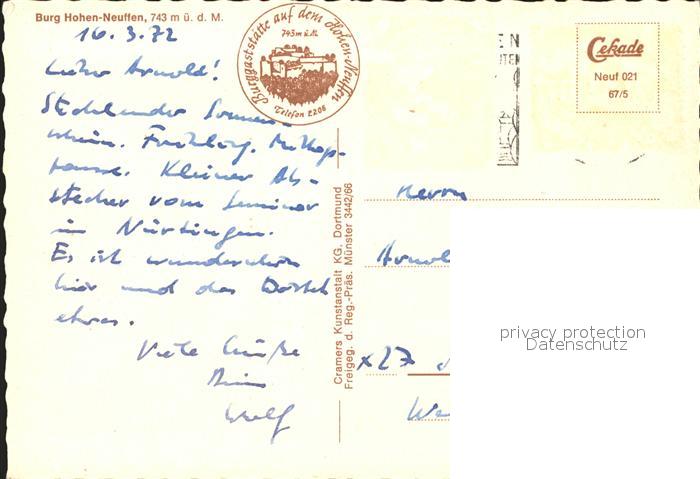 Burg Hohen-Neuffen, 743 m ü. d. M.
16.3.72
Lieber Arnold!
Strahlender Sonnen-
schein. Frühling. Mittags-
pause. Kleiner Ab-
stecher vom Seminar
in Nürtingen.
Es ist wunderschön
hier und das
etwas.
Viele Grüße
Dein
Wolf
Burggaststätte auf dem Hohen-Neuffen
743 m ü. M.
Telefon 2206
Cramers Kunstanstalt KG, Dortmund
Freigeg. d. Reg.-Präs. Münster 3442/66
Cekade
Neuf 021
67/5
EN
Herrn
Arnol
x27
We
privacy protection
Datenschutz